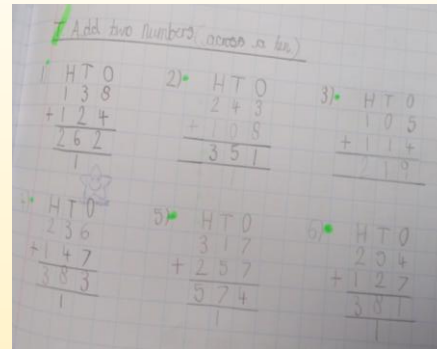 Add two numbers (across a ten)
1) H T O
1 3 8
+ 1 2 4
2 6 2
1
2) H T O
2 4 3
+ 1 0 8
3 5 1
1
3) H T O
1 0 5
+ 1 1 4
2 1 9
H T O
2 3 6
+ 1 4 7
3 8 3
1
5) H T O
3 1 7
+ 2 5 7
5 7 4
1
6) H T O
2 5 4
+ 1 2 7
3 8 1
1